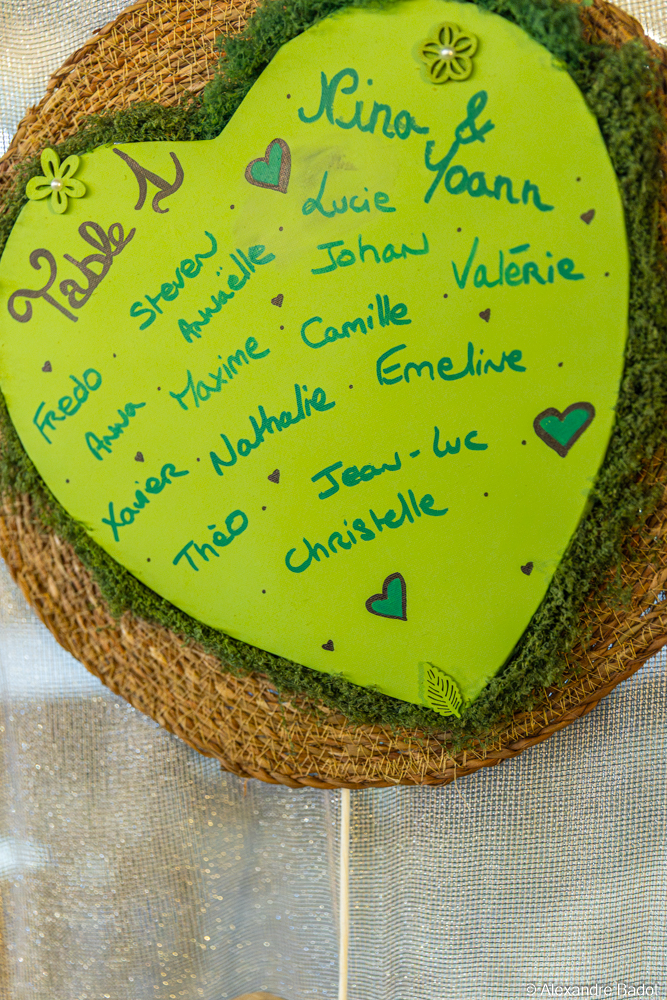 Nina &
Yoann
Table 1
Lucie
Steven
Johan
Annaëlle
Valérie
Fredo
Camille
Maxime
Anna
Emeline
Nathalie
Xavier
Jean-Luc
Théo
Christelle
© Alexandre Badot